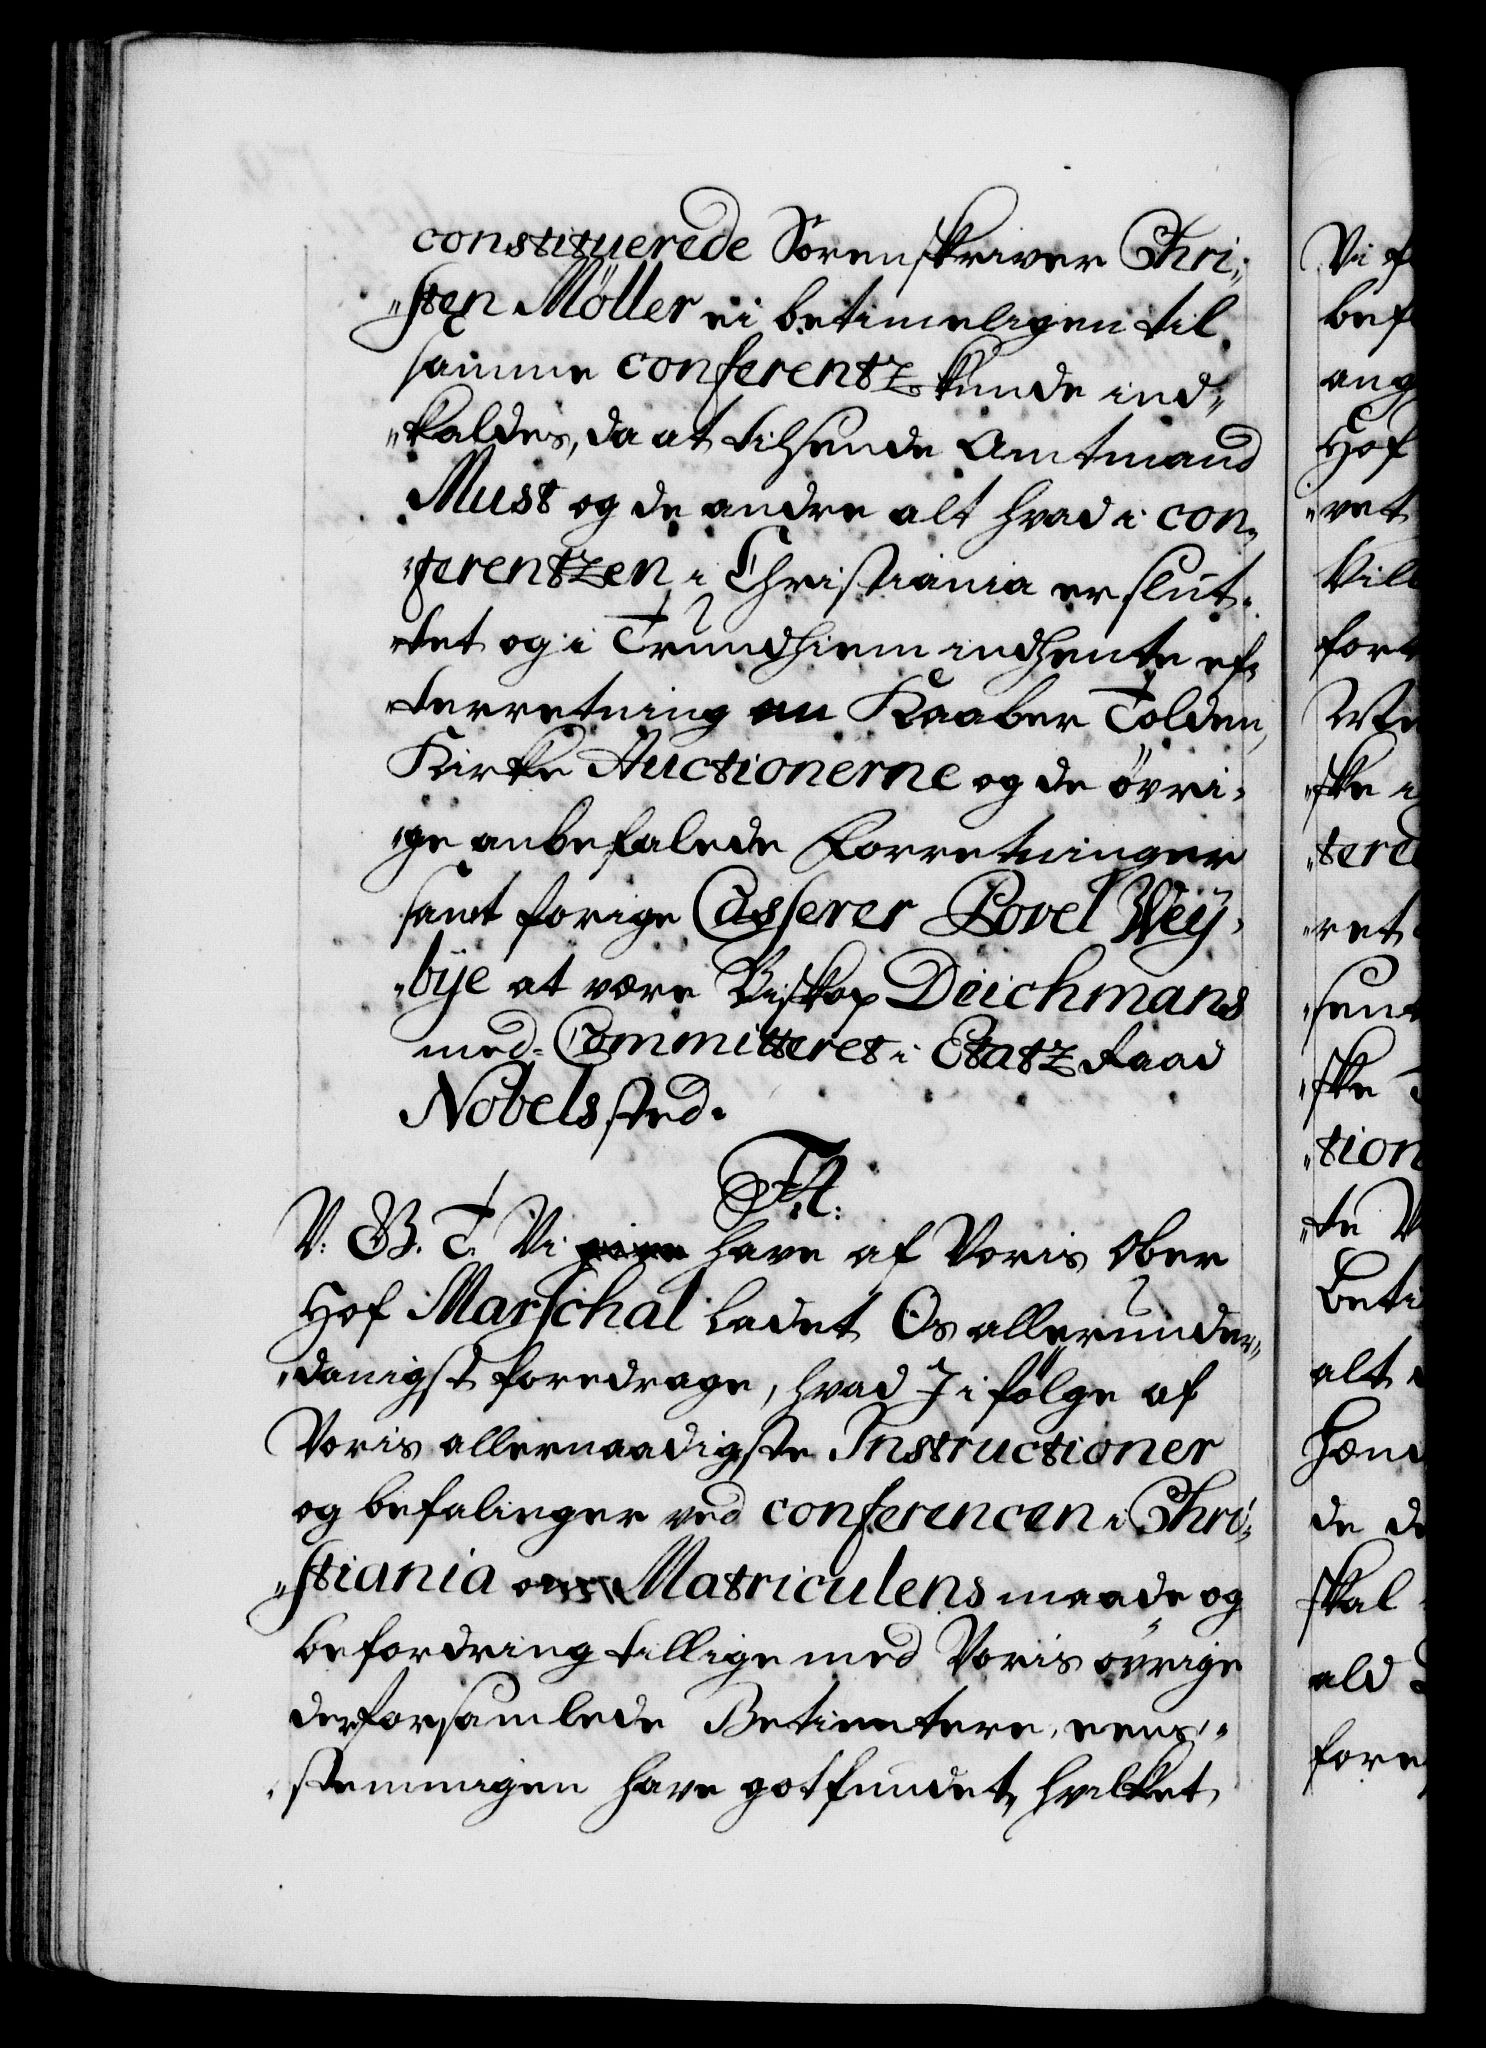 constituerede Sorenskriver Chri„
„sten Möller ei betimeligen til
samme conferentz kunde ind„
„kaldes, da at tilsende Amtmand
Must og de andre alt hvad i con„
„ferentzen i Christiania er slut„
„tet og i Trundhiem indhente ef„
„terretning om Kaaber Tolden,
Kirke Auctionerne og de övri„
„ge anbefalede Forretninger
samt forige Casserer Povel Weÿ„
„bÿe at være Biskop Deichmans
med-Committeret i Etatz Raad
Nobels sted.
F. 4.
V: G. T. Vi have af Voris Ober
Hof Marschal ladet Os allerunder„
„danigst foredrage, hvad I i fölge af
Voris allernaadigste Instructioner
og befalinger ved conferencen i Chri„
„stiania om Matriculens maade og
befordring tillige med Voris övrige
der forsamlede Betientere, eens„
„stemmigen have got fundet, hvilket
Vi f
bef
ang
Hof
„vet
Vill
for
We
„ske i
„tered
„ret
„sen
„ske
„tion
„te V
Beti
alt
Hænd
de de
skal
ald
fore